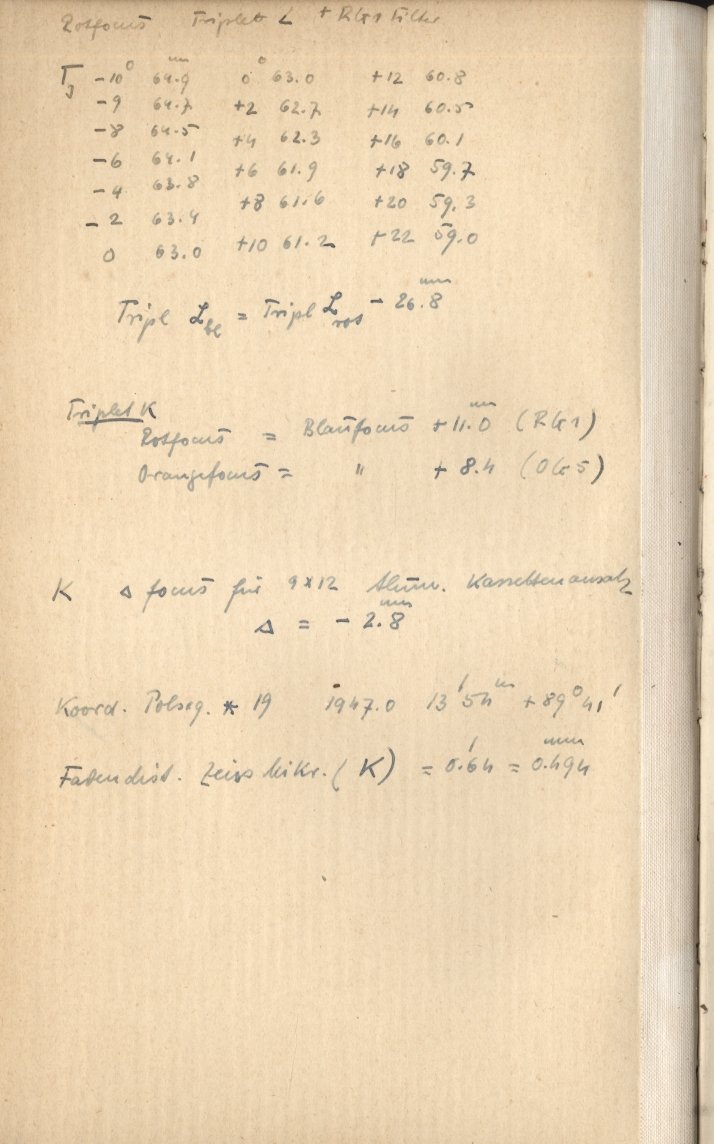 Rotfocus Triplet L + RG1 Filter
T_J -10° 64.9 mm 0° 63.0 +12 60.8
-9 64.7 +2 62.7 +14 60.5
-8 64.5 +4 62.3 +16 60.1
-6 64.1 +6 61.9 +18 59.7
-4 63.8 +8 61.6 +20 59.3
-2 63.4 +10 61.2 +22 59.0
0 63.0
Tripl L_bl = Tripl L_rot - 26.8 mm
Triplet K
Rotfocus = Blaufocus + 11.0 mm (RG1)
Orangefocus = " + 8.4 (OG5)
K Δ focus für 9x12 Alum. Kassettenansatz
Δ = - 2.8 mm
Koord. Polseq. * 19 1947.0 13h 54m +89° 41'
Fadendist. Zeiss Mikr. (K) = 0.64 = 0.494 mm